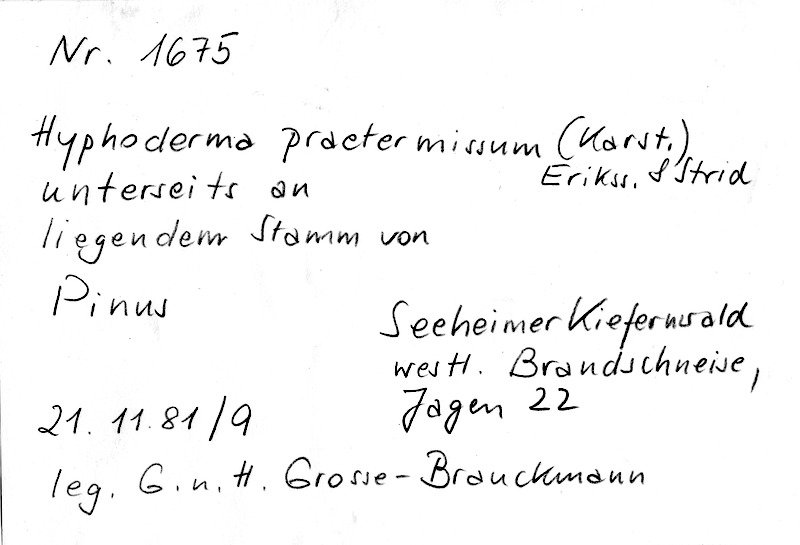 Nr. 1675
Hyphoderma praetermissum (Karst.)
Erikss. & Strid
unterseits an
liegendem Stamm von
Pinus
Seeheimer Kiefernwald
westl. Brandschneise,
Jagen 22
21.11.81/9
leg. G. u. H. Grosse-Brauckmann